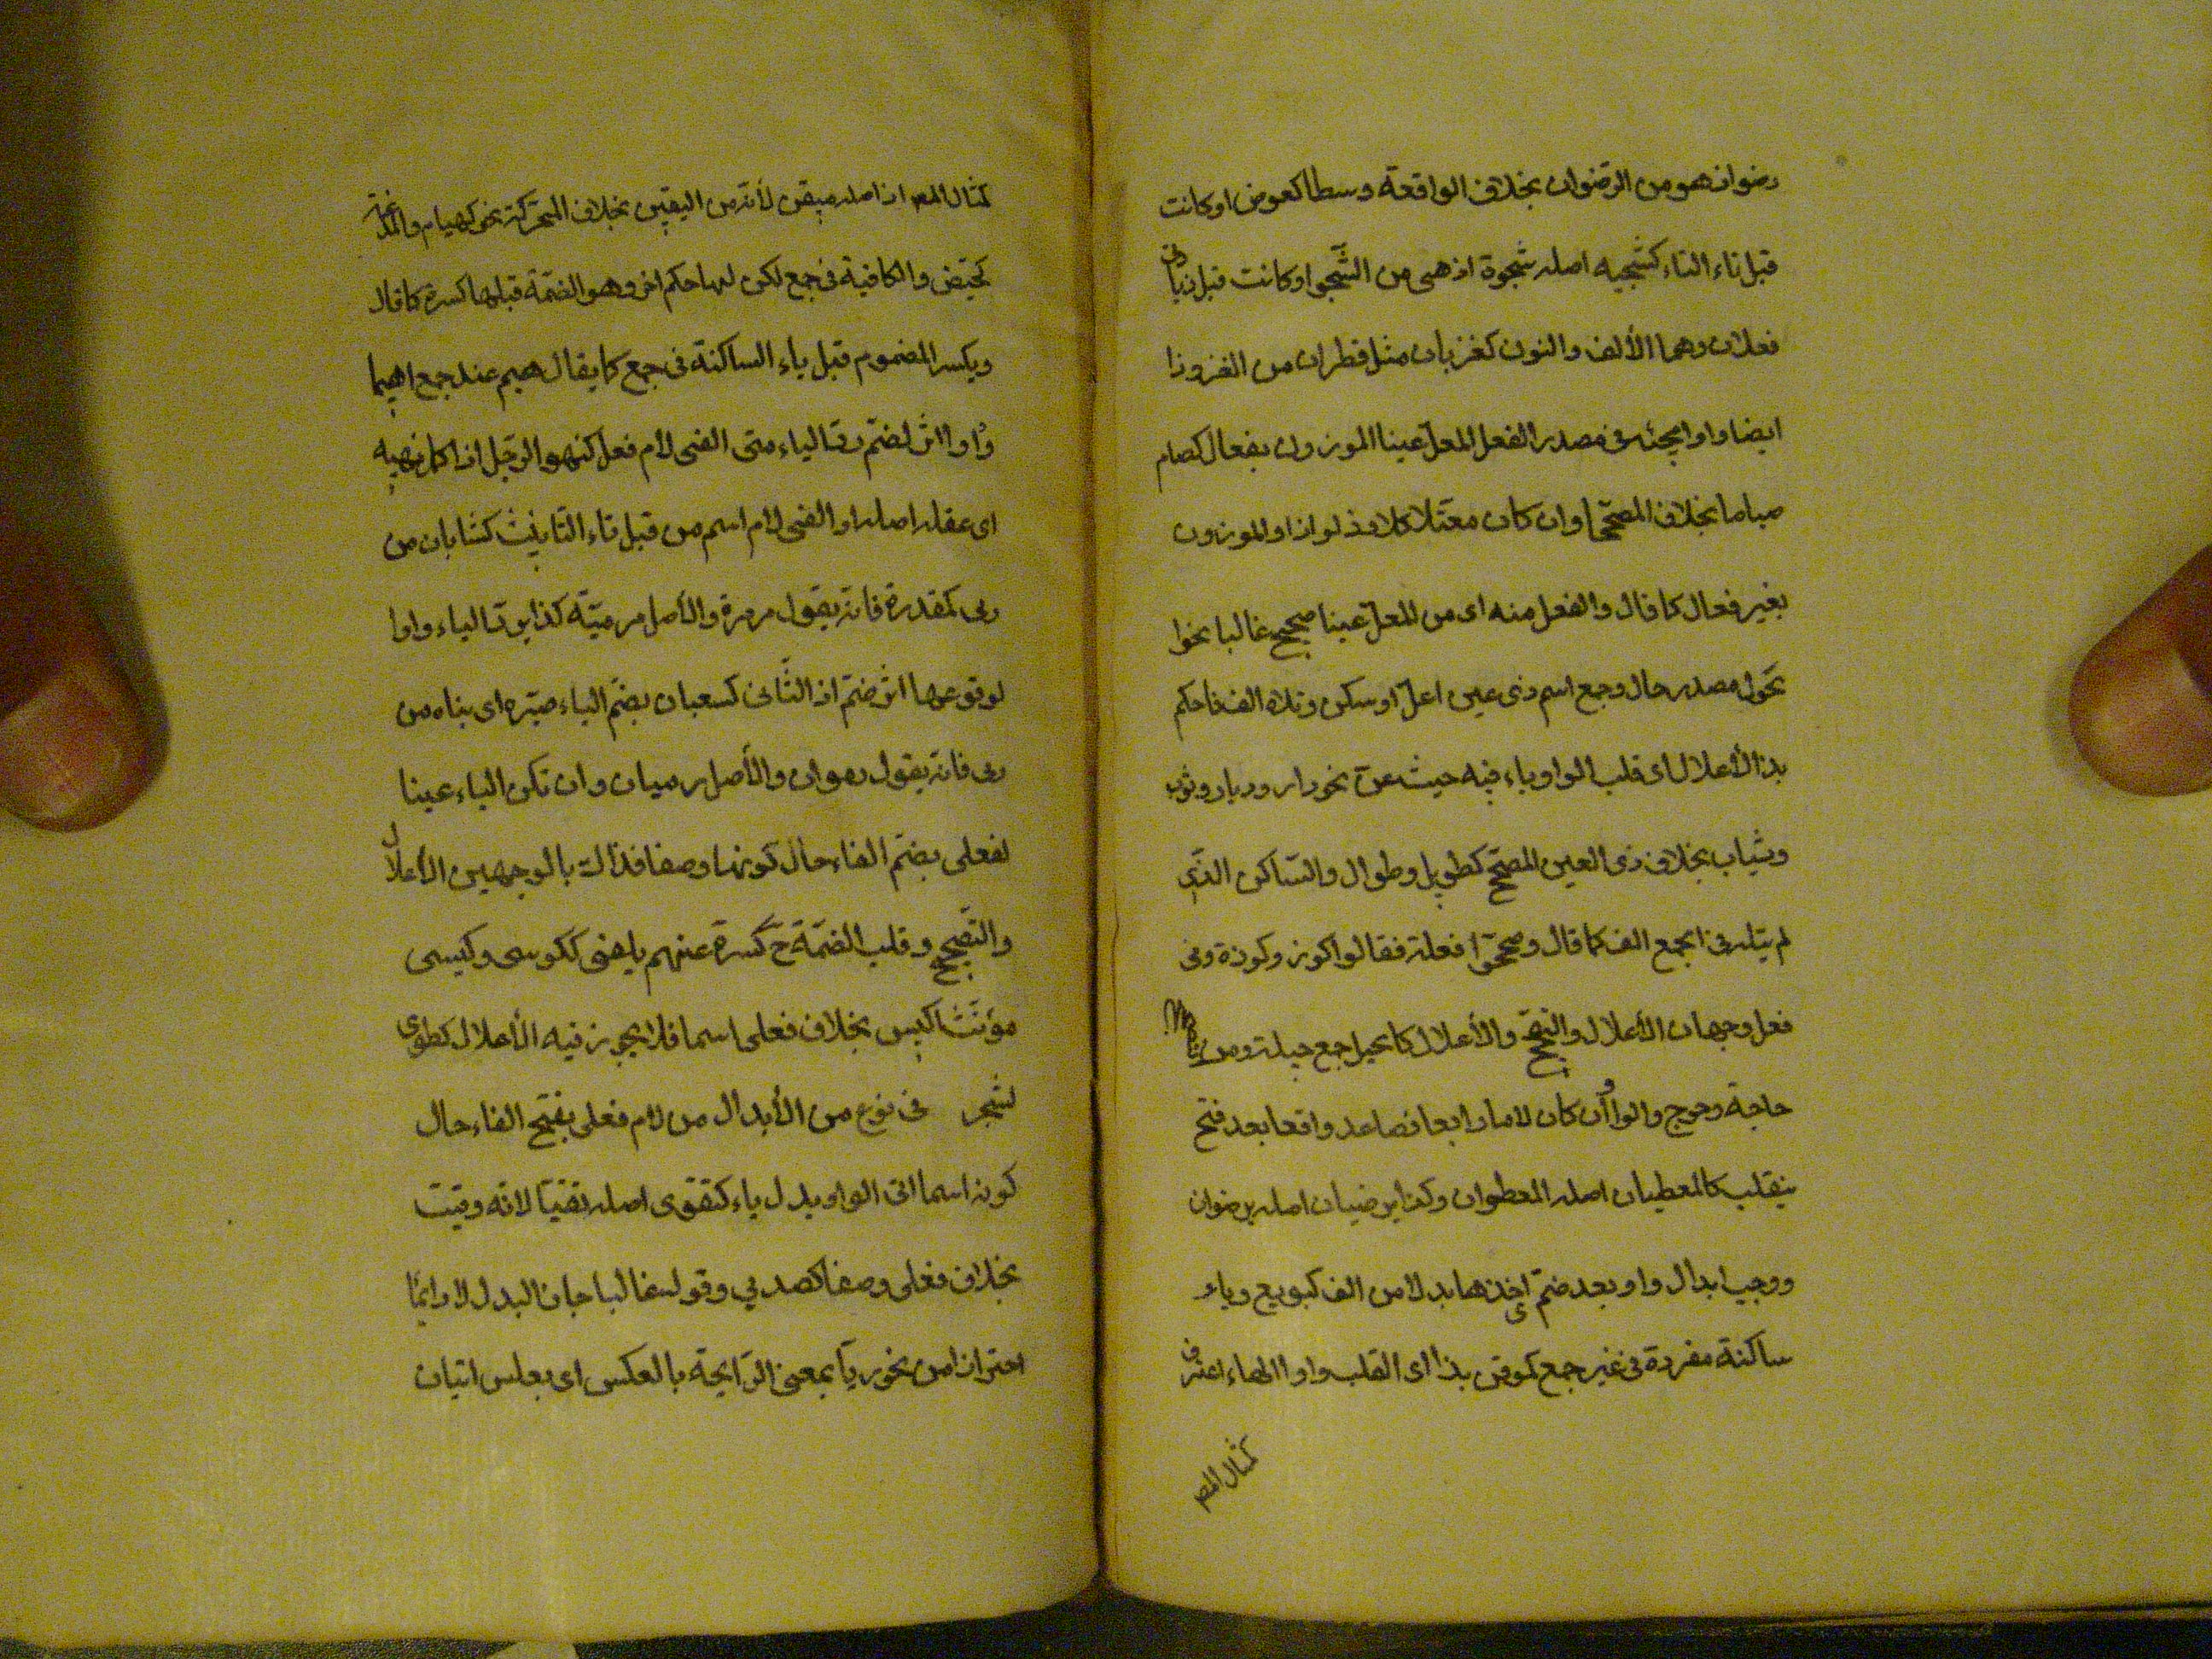 رضوا اذ هو من الرضوان بخلاف الواقعة وسطا كعوض او كانت
قبل تاء التاء كشجيه اصله شجوة اذ هي من الشجو او كانت قبل زيادتى
فعلان وهما الألف والنون كغزيان مثل قطران من الغزو ذا
ايضا واوا يجئ في مصدر الفعل المعل عينا الموزون بفعال كصام
صياما بخلاف المصحح وان كان معتلا كلاوذ لواذا والموزون
بغير فعال كما قال والفعل منه اى من المعل عينا صحيح غالبا نحو
تحول مصدر حال وجمع اسم ذى عين اعل او سكن وتلاه الف فاحكم
بذا الأعلال اى قلب الواو ياء فيه حيث عن نحو دار وديار وثوب
وثياب بخلاف ذى العين المصحح كطويل وطوال والساكن الذى
لم يتله في الجمع الف كما قال وصححوا فعلة فقالوا كوز وكوزة وفى
فعل وجهان الأعلال والتصحيح والأعلال كالحيل جمع حيلة ومن
حاجة وحوج والواو ان كان لاما رابعا فصاعدا واقعا بعد فتح
ينقلب كالمعطيان اصله المعطوان وكذا يرضيان اصله يرضوان
ووجب ابدال واو بعد ضم اى اخذها بدلا من الف كبويع وياء
ساكنة مفردة في غير جمع كموقن بذا اى القلب واوا لها اعترف
كمثال المص
كمثال المص اذ اصله ميقن لأنه من اليقين بخلاف المتحركة نحو كهيام والمدغمة
كحيض والكافية في جمع لكن لها حكم اخر وهو الضمة قبلها كسرة كما قال
ويكسر المضموم قبل ياء الساكنة في جمع كما يقال هيم عند جمع اهيما
وواوا اثر لضم رد الياء متى الفى لام فعل كنهو الرجل اذا كمل نهيه
اى عقله اصله او الفى لام اسم من قبل تاء التانيث كتاء بان من
رمى كمقدرة فانه يقول مرموة والأصل مرمية كذا يرد الياء واوا
لوقوعها اثر ضم اذ الثانى كسبعان بضم الباء صيره اى بناه من
رمى فانه يقول رموان والأصل رميان وان تكن الياء عينا
لفعلى بضم الفاء حال كونها وصفا فذاك بالوجهين الأعلال
والتصحيح وقلب الضمة ح كسرة عنهم يلفى ككوسى وكيسى
مؤنث اكيس بخلاف فعلى اسما فلا يجوز فيه الأعلال كطوبى
لشجر في نوع من الأبدال من لام فعلى بفتح الفاء حال
كونه اسما اتى الواو بدل ياء كتقوى اصله تقيا لانه وقيت
بخلاف فعلى وصفا كصديي وقوله غالبا جاء ذا البدل لا دائما
احترازا من نحو ريا بمعنى الرايحة بالعكس اى بعكس اتيان